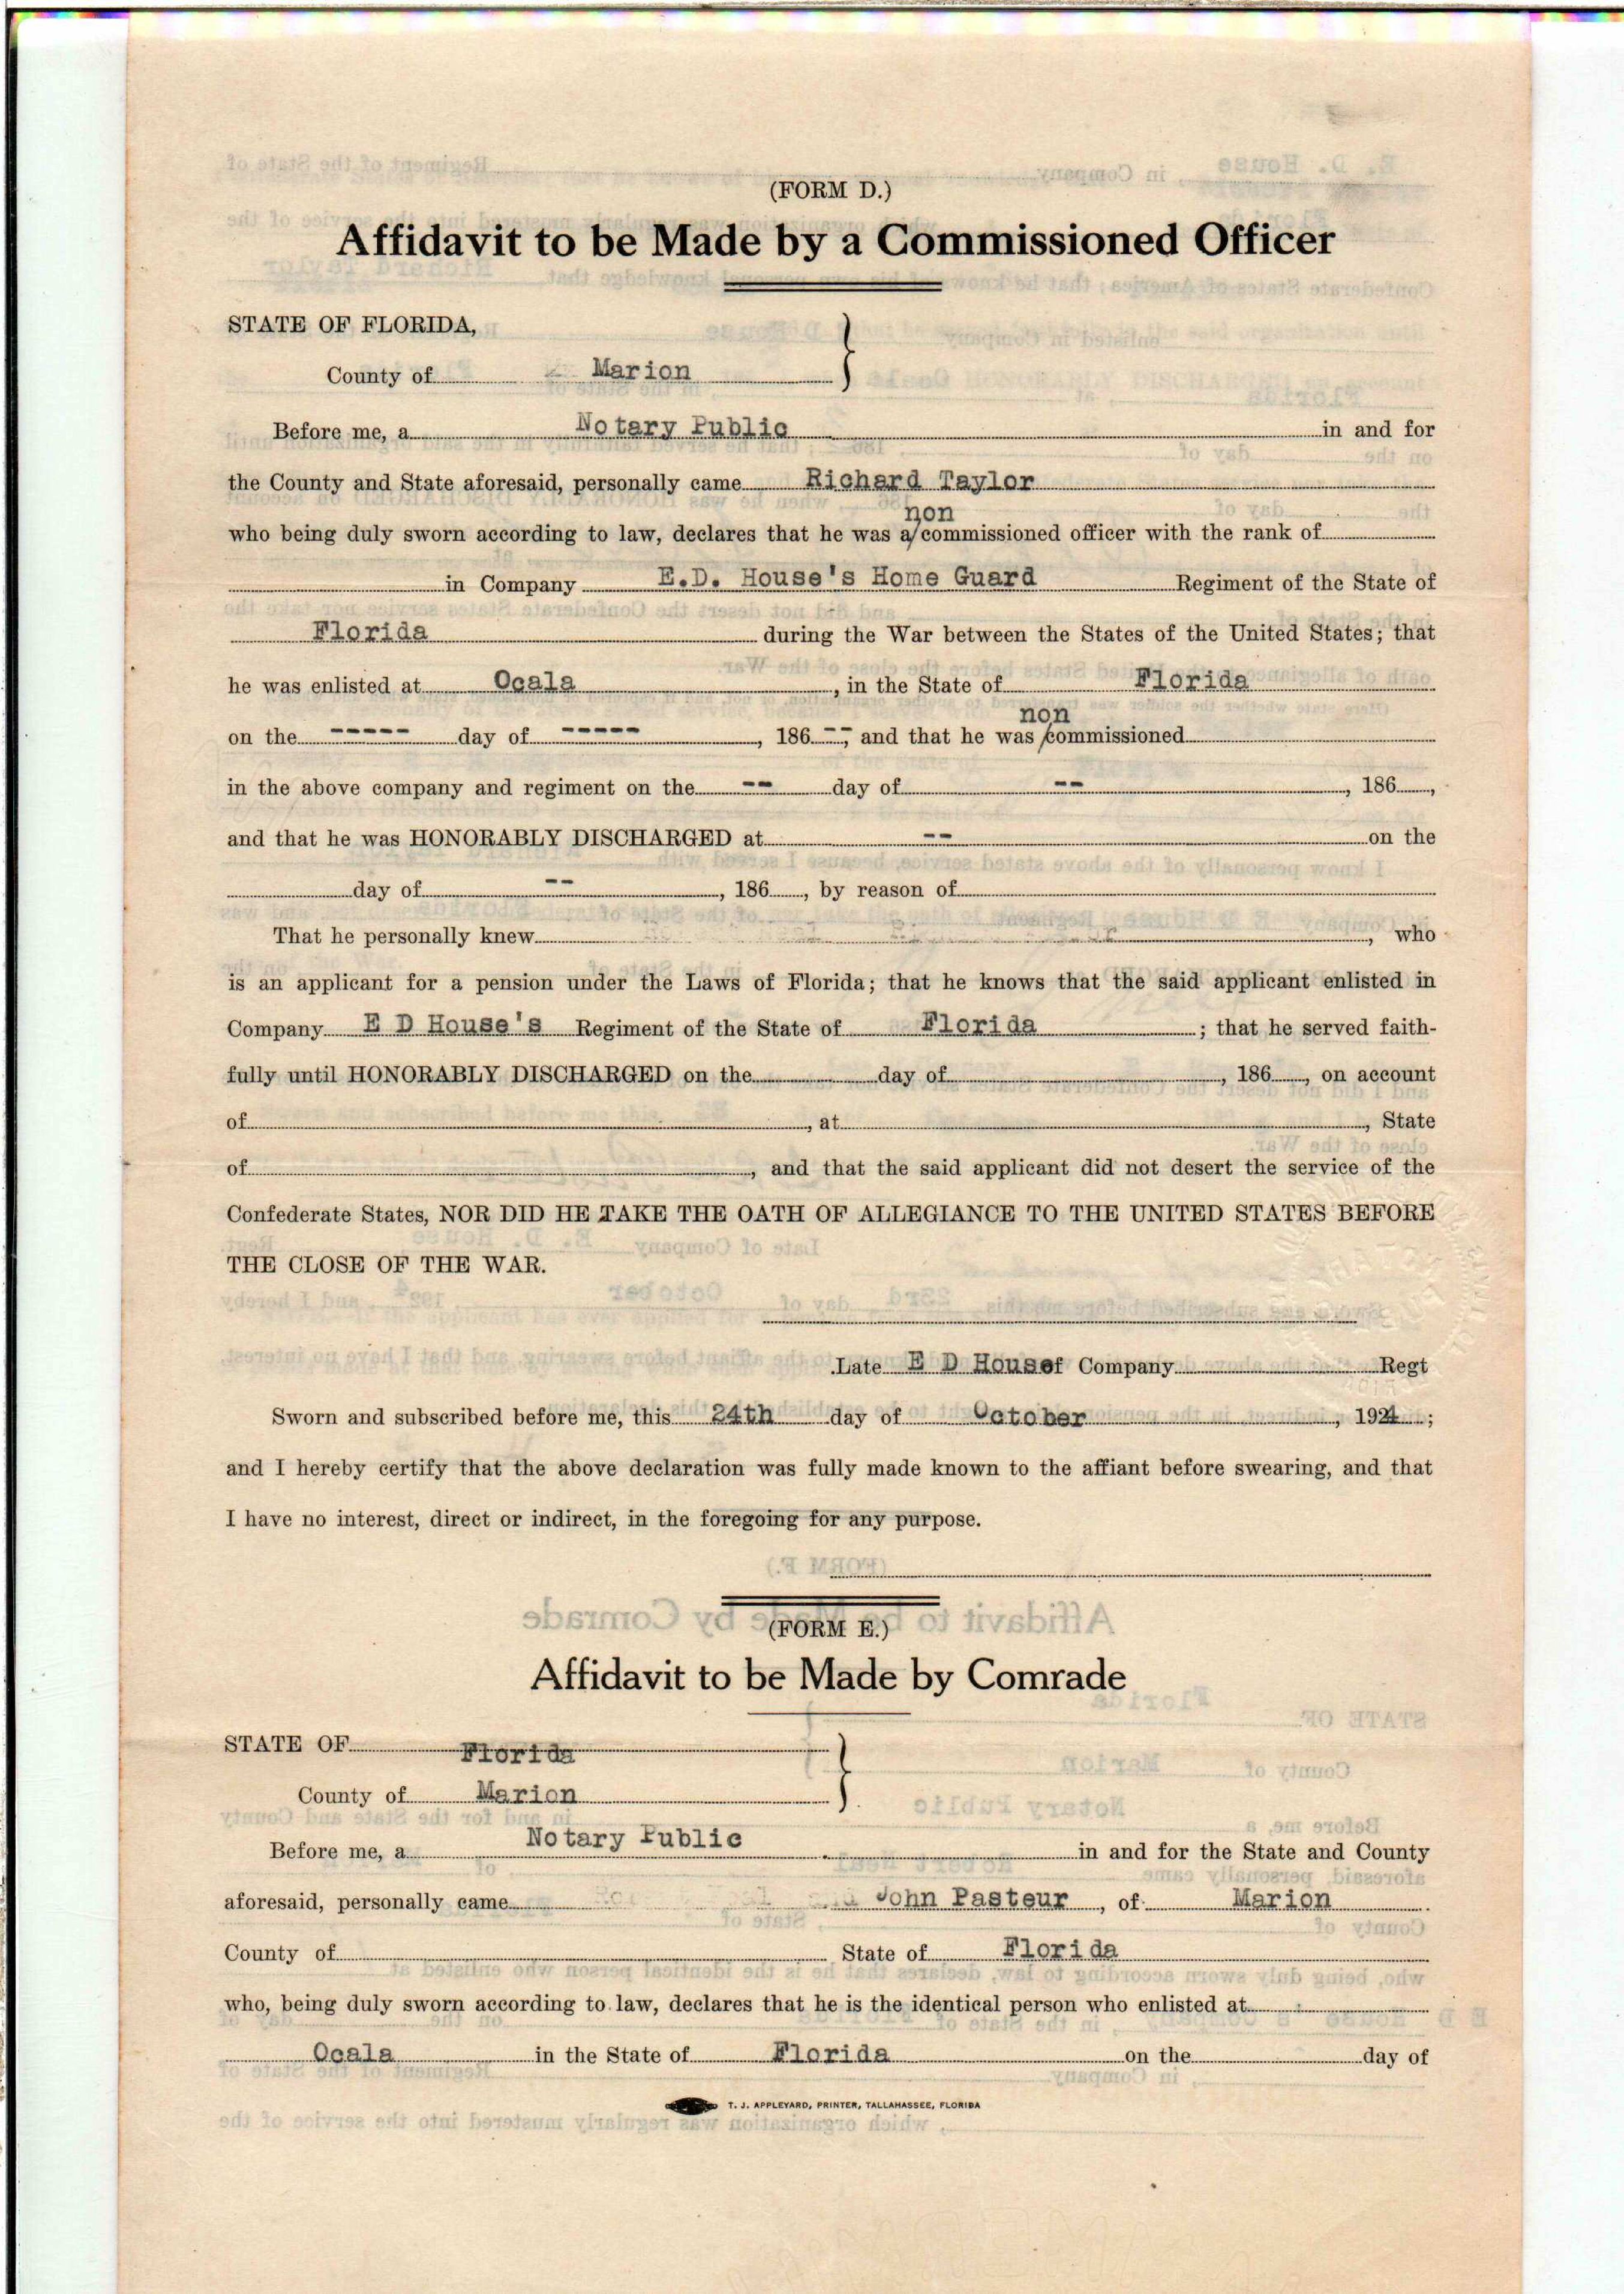 (FORM D.)
Affidavit to be Made by a Commissioned Officer
STATE OF FLORIDA,
County of Marion
Before me, a Notary Public in and for
the County and State aforesaid, personally came Richard Taylor
non
who being duly sworn according to law, declares that he was a/commissioned officer with the rank of
in Company E.D. House's Home Guard Regiment of the State of
Florida during the War between the States of the United States; that
he was enlisted at Ocala, in the State of Florida
non
on the ----- day of -----, 186--, and that he was /commissioned
in the above company and regiment on the -- day of --, 186,
and that he was HONORABLY DISCHARGED at -- on the
day of --, 186, by reason of
That he personally knew, who
is an applicant for a pension under the Laws of Florida; that he knows that the said applicant enlisted in
Company E D House's Regiment of the State of Florida; that he served faith-
fully until HONORABLY DISCHARGED on the day of, 186, on account
of, at, State
of, and that the said applicant did not desert the service of the
Confederate States, NOR DID HE TAKE THE OATH OF ALLEGIANCE TO THE UNITED STATES BEFORE
THE CLOSE OF THE WAR.
Late E D House of Company Regt
Sworn and subscribed before me, this 24th day of October, 1924;
and I hereby certify that the above declaration was fully made known to the affiant before swearing, and that
I have no interest, direct or indirect, in the foregoing for any purpose.
(FORM E.)
Affidavit to be Made by Comrade
STATE OF Florida
County of Marion
Before me, a Notary Public in and for the State and County
aforesaid, personally came John Pasteur, of Marion
County of State of Florida
who, being duly sworn according to law, declares that he is the identical person who enlisted at
Ocala in the State of Florida on the day of
T. J. APPLEYARD, PRINTER, TALLAHASSEE, FLORIDA